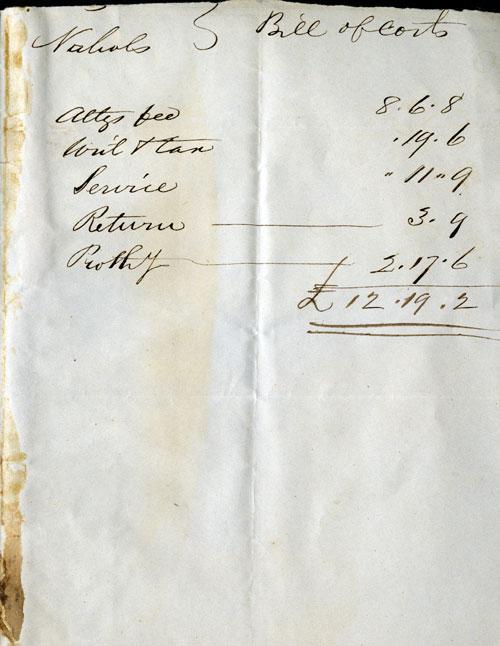 Nichols } Bill of costs
Attys fee 8.6.8
Writ & tax .19.6
Service " 11 " 9
Return 3.9
Prothy 2.17.6
£ 12.19.2